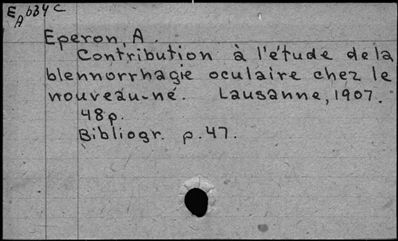 E
A b34c
Eperon, A.
Contribution à l'étude de la
blennorrhagie oculaire chez le
nouveau-né. Lausanne, 1907.
48p.
Bibliogr. p.47.